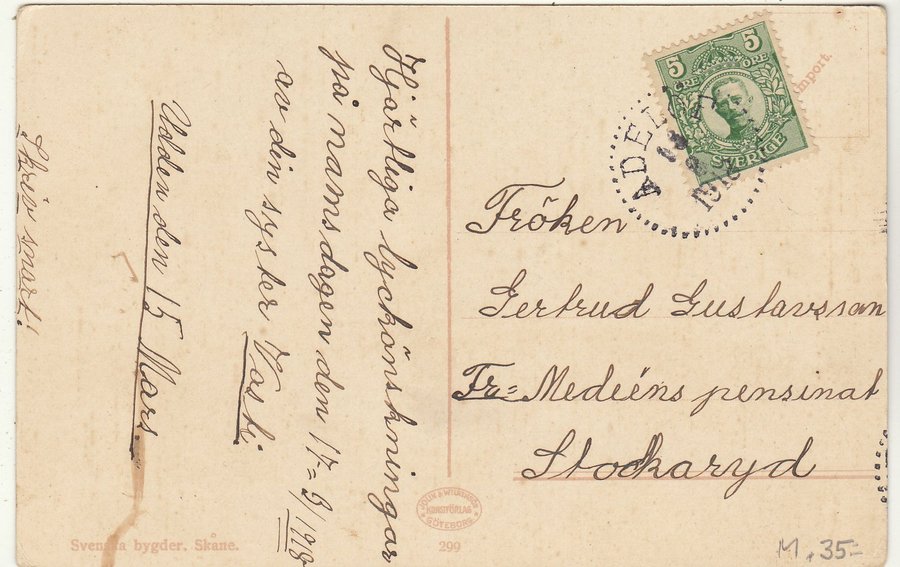 Hjärtliga lyckönskningar
på namnsdagen den 17=3/1918
av din syster Vasti
Udden den 15 Mars.
Skriv snart!
5 5
ÖRE ÖRE
SVERIGE
1918
import.
Fröken
Gertrud Gustavsson
Fr= Medeéns pensinat
Stockaryd
KONSTFÖRLAG
GÖTEBORG
Svenska bygder. Skåne.
299
M. 35=